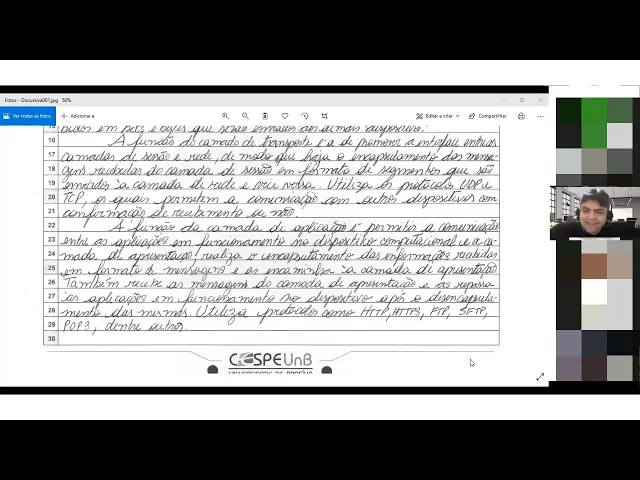 Fotos - Discursiva001.jpg 50%
Ver todas as Fotos
Adicionar a
Editar e criar
Compartilhar
15 bidos em bits e bytes que serão enviados aos demais dispositivo.
16 A função do camada de transporte é a de promover a interface entre as
17 camadas de sessão e rede, de modo que haja o encapsulamento das mensa-
18 gens recebidas do camada de sessão em formato de segmentos que são
19 enviados à camada de rede e vice versa. Utiliza os protocolos UDP e
20 TCP, os quais permitem a comunicação com outros dispositivos com
21 confirmação de recebimento ou não.
22 A função da camada de aplicação é permitir a comunicação
23 entre as aplicações em funcionamento no dispositivo computacional e a ca-
24 mada de apresentação, realiza o encapsulamento das informações recebidas
25 em formato de mensagens e as encaminha à camada de apresentação.
26 Também recebe as mensagens do camada de apresentação e as repassa
27 às aplicações em funcionamento no dispositivo após o desencapsula-
28 mento das mesmas. Utiliza protocolos como HTTP, HTTPS, FTP, SFTP,
29 POP3, dentre outros.
30
CESPE UnB
UNIVERSIDADE DE BRASÍLIA